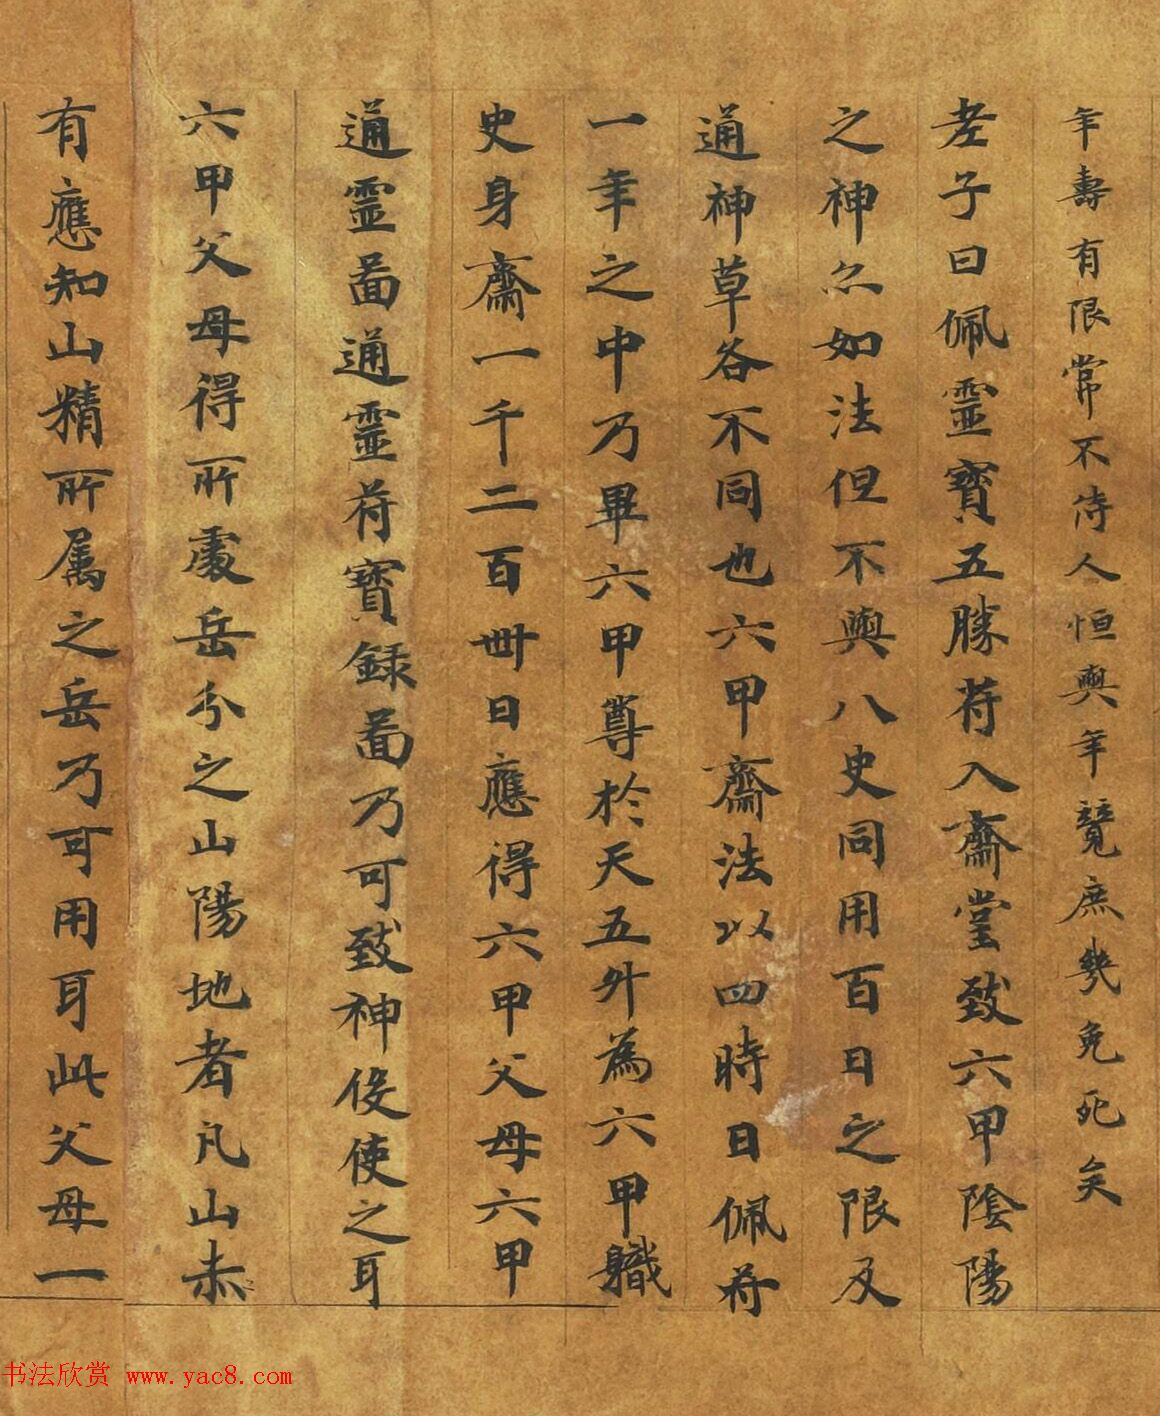 年壽有限常不待人恒與年競庶幾免死矣
老子曰佩靈寶五勝符入齋堂致六甲陰陽
之神亦如法但不與八史同用百日之限及
通神草各不同也六甲齋法以四時日佩符
一年之中乃畢六甲尊於天五外為六甲職
史身齋一千二百卌日應得六甲父母六甲
通靈圖通靈符寶録圖乃可致神役使之耳
六甲父母得所處岳分之山陽地者凡山未
有應知山精所属之岳乃可用耳此父母一
书法欣赏 www.yac8.com